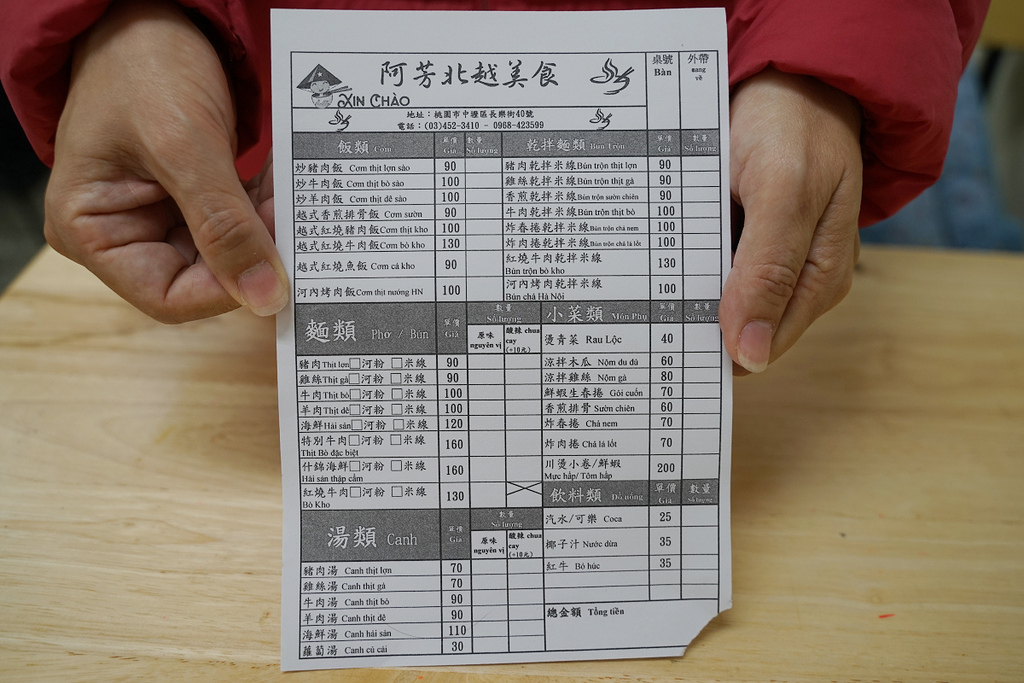 阿芳北越美食
XIN CHÀO
地址：桃園市中壢區長樂街40號
電話：(03)452-3410 - 0968-423599
桌號 Bàn
外帶 mang về
飯類 Cơm 單價 Giá 數量 Số lượng
炒豬肉飯 Cơm thịt lợn sào 90
炒牛肉飯 Cơm thịt bò sào 100
炒羊肉飯 Cơm thịt dê sào 100
越式香煎排骨飯 Cơm sườn 90
越式紅燒豬肉飯 Cơm thịt kho 100
越式紅燒牛肉飯 Cơm bò kho 130
越式紅燒魚飯 Cơm cá kho 90
河內烤肉飯 Cơm thịt nướng HN 100
乾拌麵類 Bún Trộn 單價 Giá 數量 Số lượng
豬肉乾拌米線 Bún trộn thịt lợn 90
雞絲乾拌米線 Bún trộn thịt gà 90
香煎乾拌米線 Bún trộn sườn chiên 90
牛肉乾拌米線 Bún trộn thịt bò 100
炸春捲乾拌米線 Bún trộn chả nem 100
炸肉捲乾拌米線 Bún trộn chả lá lốt 100
紅燒牛肉乾拌米線
Bún trộn bò kho 130
河內烤肉乾拌米線
Bún chả Hà Nội 100
麵類 Phở / Bún 單價 Giá 數量 Số lượng
原味 nguyên vị 酸辣 chua cay (+10元)
豬肉 Thịt lợn □河粉 □米線 90
雞絲 Thịt gà □河粉 □米線 90
牛肉 Thịt bò □河粉 □米線 100
羊肉 Thịt dê □河粉 □米線 100
海鮮 Hải sản □河粉 □米線 120
特別牛肉 □河粉 □米線
Thịt Bò đặc biệt 160
什錦海鮮 □河粉 □米線
Hải sản thập cẩm 160
紅燒牛肉 □河粉 □米線
Bò Kho 130
湯類 Canh 單價 Giá 數量 Số lượng
原味 nguyên vị 酸辣 chua cay (+10元)
豬肉湯 Canh thịt lợn 70
雞絲湯 Canh thịt gà 70
牛肉湯 Canh thịt bò 90
羊肉湯 Canh thịt dê 90
海鮮湯 Canh hải sản 110
蘿蔔湯 Canh củ cải 30
小菜類 Món Phụ 單價 Giá 數量 Số lượng
燙青菜 Rau Lộc 40
涼拌木瓜 Nộm đu đủ 60
涼拌雞絲 Nộm gà 80
鮮蝦生春捲 Gỏi cuốn 70
香煎排骨 Sườn chiên 60
炸春捲 Chả nem 70
炸肉捲 Chả lá lốt 70
川燙小卷/鮮蝦
Mực hấp/ Tôm hấp 200
飲料類 Đồ uống 單價 Giá 數量 Số lượng
汽水/可樂 Coca 25
椰子汁 Nước dừa 35
紅牛 Bò húc 35
總金額 Tổng tiền